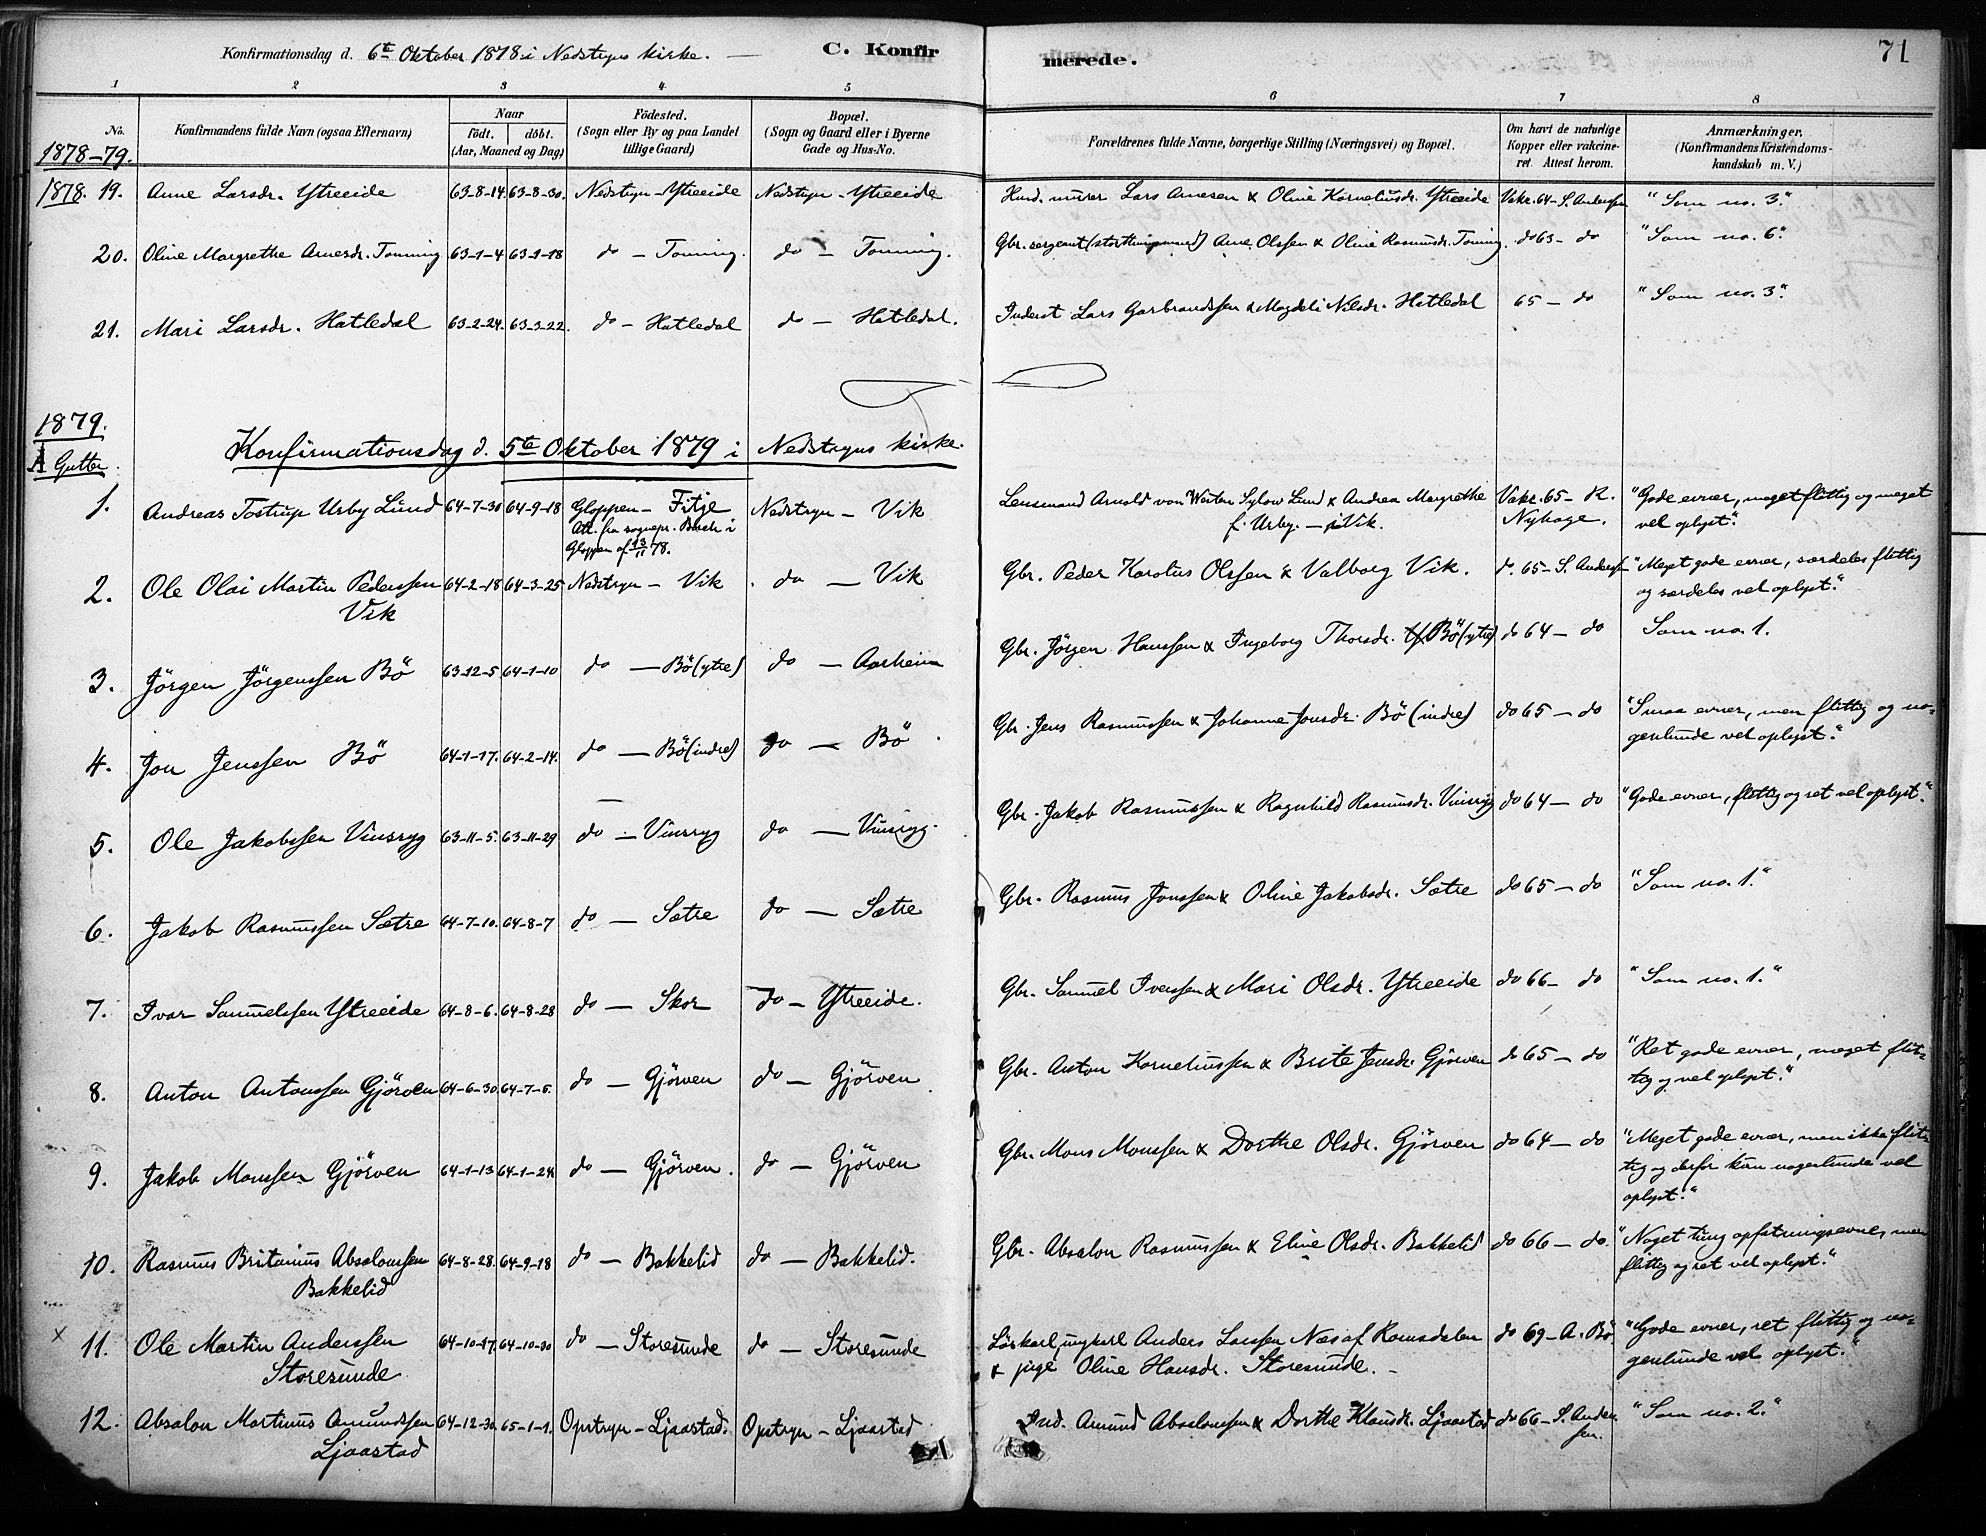 Konfirmationsdag d. 6te Oktober 1878 i Nedstryns kirke. — C. Konfirmerede. 71
1 2 3 4 5 6 7 8
No. Konfirmandens fulde Navn (ogsaa Efternavn) Naar födt. döbt. (Aar, Maaned og Dag) Födested. (Sogn eller By og paa Landet tillige Gaard) Bopæl. (Sogn og Gaard eller i Byerne Gade og Hus-No. Forældrenes fulde Navne, borgerlige Stilling (Næringsvei) og Bopæl. Om havt de naturlige Kopper eller vakcineret. Attest herom. Anmærkninger. (Konfirmandens Kristendomskundskab m. V.)
1878-79.
1878. 19. Anne Larsdr. Ytreeide 63-8-14 63-8-30. Nedstryn - Ytreeide Nedstryn - Ytreeide Husd. murer Lars Arnesen & Oline Korneliusdr. Ytreeide Vakc. 64 - S. Anderssen "Som no. 3."
20. Oline Margrethe Arnesdr. Tonning 63-1-4 63-1-18 do - Tonning. do - Tonning. Gbr. sergeant (storthingsmand) Arne Olssen & Oline Rasmusdr. Tonning. do 63 - do "Som no. 6."
21. Mari Larsdr. Hatledal 63-2-24. 63-3-22. do - Hatledal do - Hatledal. Inderst Lars Garbrandssen & Magdeli Nilsdr. Hatledal 65 - do "Som no. 3."
1879.
A Gutter.
Konfirmationsdag d. 5te Oktober 1879 i Nedstryns kirke.
1. Andreas Tostrup Urby Lund 64-7-30 64-9-18 Gloppen - Fitje Nedstryn - Vik Lensmand Arnold von Westen Sylow Lund & Andrea Margrethe Vakc. 65 - R. "Gode evner, meget flittig og meget
Att. fra sognepr. Buch i f. Urby. - i Vik. Nyhage. vel oplyst."
Gloppen af 13/11 78.
2. Ole Olai Martin Pederssen 64-2-18 64-3-25 Nedstryn - Vik. do - Vik Gbr. Peder Karolus Olssen & Valborg Vik. do. 65 - S. Anderssen "Meget gode evner, særdeles flittig
Vik og særdeles vel oplyst."
3. Jörgen Jörgenssen Bö 63-12-5 64-1-10 do - Bö (ytre) do - Aarheim Gbr. Jörgen Hanssen & Ingeborg Thorsdr. Bö (ytre) do 64 - do Som no. 1.
4. Jon Jenssen Bö 64-1-17. 64-2-14. do - Bö (indre) do - Bö Gbr. Jens Rasmussen & Johanne Jonsdr. Bö (indre) do 65 - do "Smaa evner, men flittig og no-
genlunde vel oplyst."
5. Ole Jakobssen Vinsryg 63-11-5. 63-11-29 do - Vinsryg do - Vinsryg. Gbr. Jakob Rasmussen & Ragnhild Rasmusdr. Vinsryg do 64 - do "Gode evner, flittig og ret vel oplyst."
6. Jakob Rasmussen Sætre 64-7-10. 64-8-7 do - Sætre do - Sætre Gbr. Rasmus Jonssen & Oline Jakobsdr. Sætre do 65 - do "Som no. 1."
7. Ivar Samuelssen Ytreeide 64-8-6. 64-8-28 do - Skor do - Ytreeide. Gbr. Samuel Iverssen & Mari Olsdr. Ytreeide do 66 - do "Som no. 1."
8. Anton Antonssen Gjörven 64-6-30 64-7-5. do - Gjörven do - Gjörven Gbr. Anton Korneliussen & Brite Jensdr. Gjörven do 65 - do "Ret gode evner, meget flit-
tig og vel oplyst."
9. Jakob Monssen Gjörven 64-1-13 64-1-24 do - Gjörven. do - Gjörven Gbr. Mons Monssen & Dorthe Olsdr. Gjörven do 64 - do "Meget gode evner, men ikke flit-
tig og derfor kun nogenlunde vel
oplyst."
10. Rasmus Britanus Absalonssen 64-8-28. 64-9-18 do - Bakkelid do - Bakkelid. Gbr. Absalon Rasmussen & Eline Olsdr. Bakkelid do 66 - do. "Noget tung opfatningsevne, men
Bakkelid flittig og ret vel oplyst."
x 11. Ole Martin Anderssen 64-10-17. 64-10-30 do - Storesunde do - Storesunde Löskarl, ungkarl Anders Larssen Næs af Romsdalen do 69 - A. Bö "Gode evner, ret flittig og no-
Storesunde & pige Oline Hansdr. Storesunde. - genlunde vel oplyst."
12. Absalon Martinus Amundssen 64-12-30. 65-1-1. Opstryn - Ljaastad. Opstryn - Ljaastad Ind. Amund Absalonssen & Dorthe Klausdr. Ljaastad do 66 - S. Anders- "Som no. 2."
Ljaastad sen.